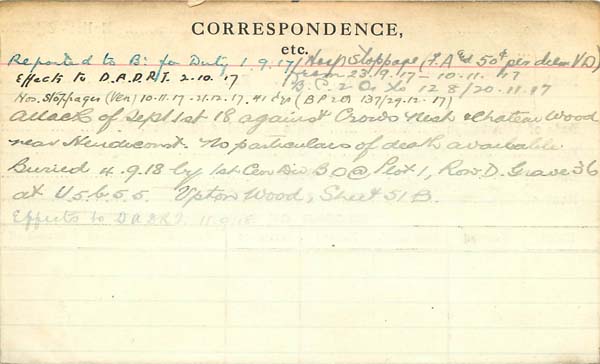 CORRESPONDENCE,
etc.
Reported to Bn for Duty 1.9.17/ Hosp Stoppage (F.A @ 50¢ per diem VD)
Effects to D.A.D.R.T. 2-10.'17 from 23.9.17 - 10.11.17
B.P. 2 Os 128/20.11.17
Hos. Stoppages (Ven) 10.11.17 - 21.12.17. 41 dys (BP 2 Os 137/29.12.17)
attack of Sept 1st 18 against Crows Nest & Chateau Wood
near Hendecourt. No particulars of death available
Buried 4.9.18 by 1st Can Div B O @ Plot 1, Row D. Grave 36
at U.5.b.5.5. Upton Wood, Sheet 51 B.
Effects to D.A.D.R.T. 11.9.18